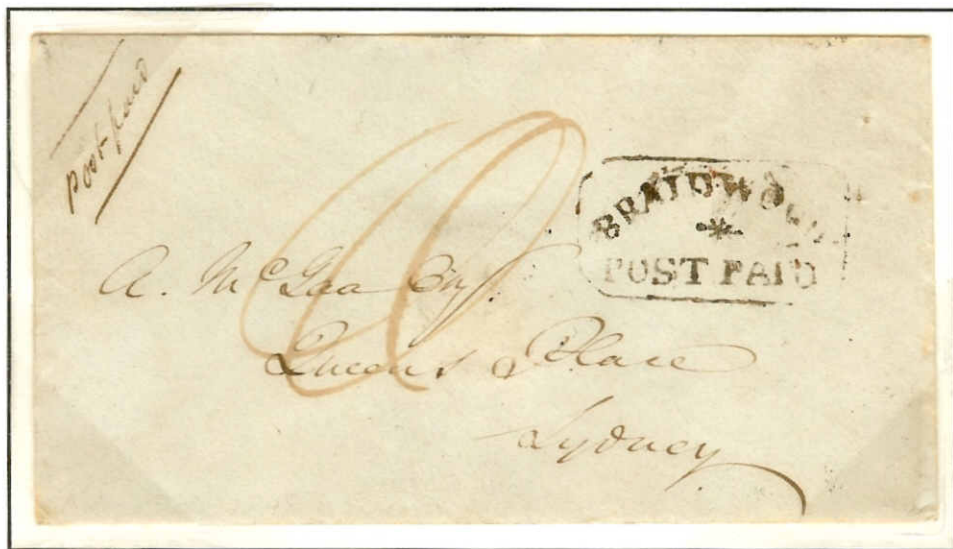 post-paid
BRAIDWOOD
POST PAID
A. McGaa Esq.
Queens Place
Sydney